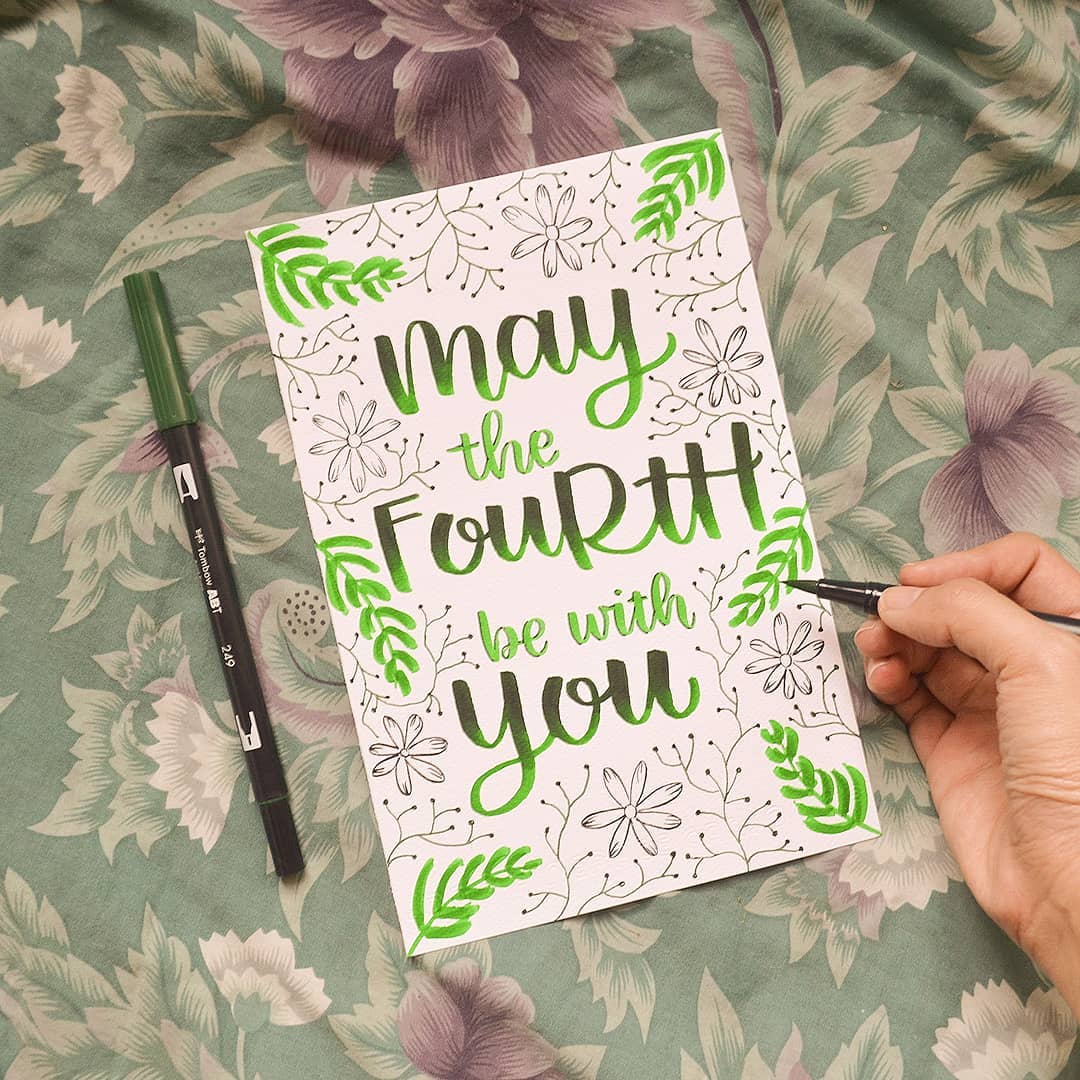 may
the
FouRtH
be with
you
Tombow ABT
249